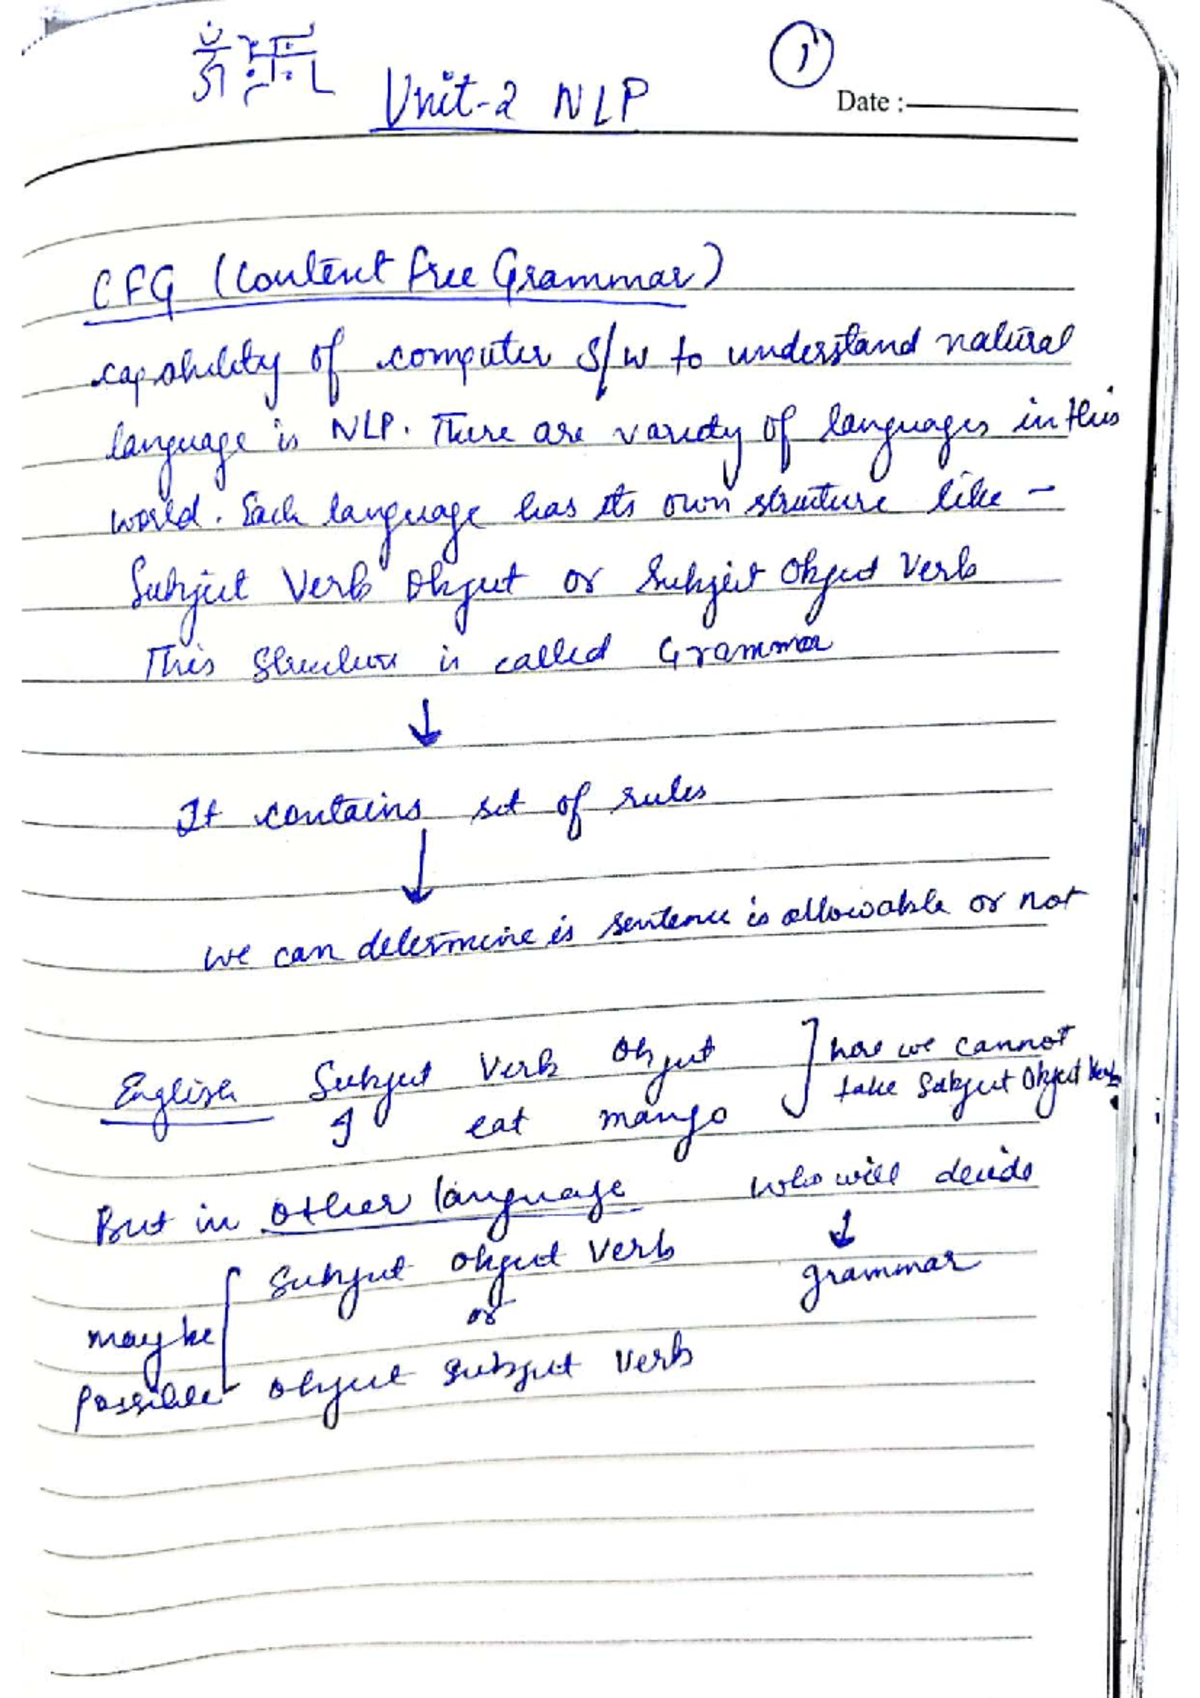 ①
Unit-2 NLP
Date :
CFG (Context free Grammar)
capability of computer S/W to understand natural
language is NLP. There are variety of languages in this
world. Each language has its own structure like –
Subject Verb Object or Subject Object Verb
This Structure is called Grammar
↓
It contains set of rules
↓
we can determine is sentence is allowable or not
English Subject Verb Object ] here we cannot
take Subject Object Verb
I eat mango
But in other language who will decide
↓
Subject Object Verb grammar
or
may be
possible Object Subject Verb